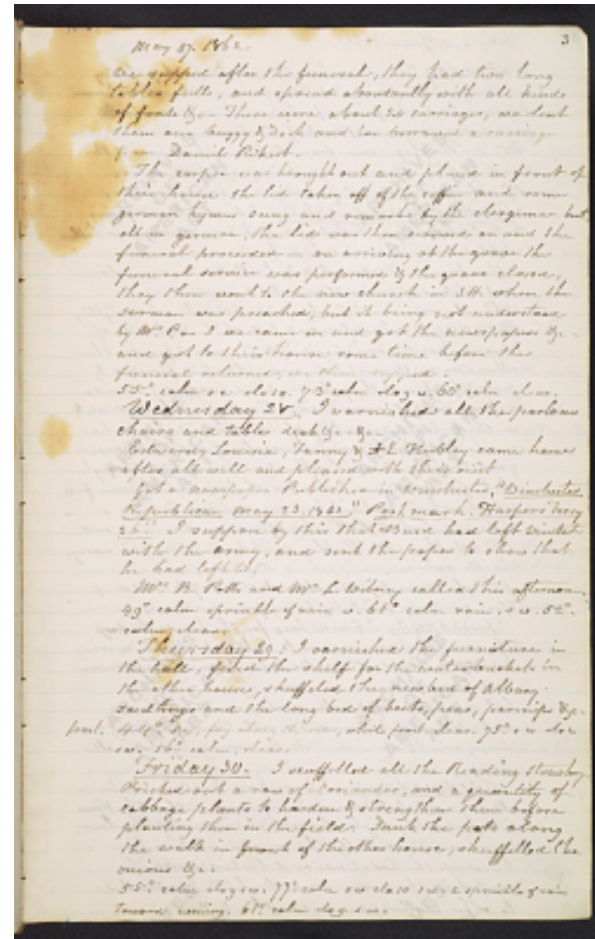 3
May 27. 1862.
we supped after the funeral, they had two long
tables full, and spread abundantly with all kinds
of foods &c. There were about 20 carriages, we
them our buggy & and a carriage
from Daniel
The corpse was brought out and placed in front of
their house the lid taken off of the coffin and some
german hymns sung and remarks by the clergyman but
all in german, the lid was then screwed on and the
funeral proceeded on arriving at the grave the
funeral service was performed & the grave closed,
they then went to the new church in when the
sermon was preached, but it being not understood
by Mrs. C or I we came in and got the newspapers &c.
and got to their house some time before the
funeral returned, we then supped.
55° calm clear. 73° calm clear. 60° calm clear.
Wednesday 28. I varnished all the parlour
chairs and tables desk &c. &c.
Louisa, Fanny & came home
after all well and pleased with their visit
Got a newspaper Published in Winchester, "Winchester
Republican May 23. 1862." Postmark. Harpers Ferry
I suppose by this that had left
with the army, and sent the paper to show that
he had left
Mrs. B. Potts and Mrs. L. called this afternoon
49° calm sprinkle of rain 61° calm rain. 52°.
calm clear.
Thursday 29. I varnished the furniture in
the hall, fixed the shelf for the water buckets in
the other house, shuffeled the of Albany
seedlings and the long bed of beets, peas, parsnips &c.
frost. 44° fog along the white frost clear. 75° clear
56° calm, clear.
Friday 30. I scuffelled all the Reading Strawbery
Pricked out a row of Coriander, and a quantity of
cabbage plants to harden & strengthen them before
planting them in the field. Sunk the pots along
the walk in front of the other house, shuffelled the
onions &c.
55° calm 77° calm clear a sprinkle of rain
toward evening. 61° calm